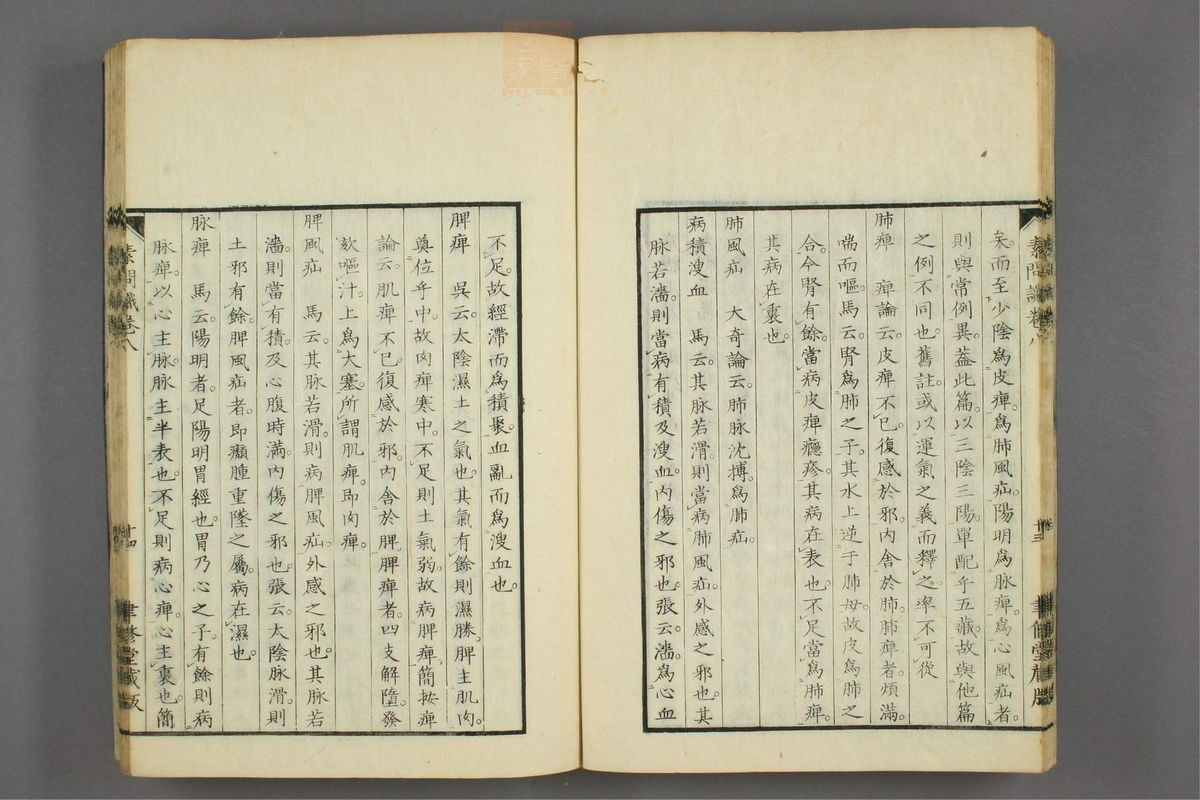 矣。而至少陰爲皮痺。爲肺風疝。陽明爲脉痺。爲心風疝者。
則與常例異。葢此篇。以三陰三陽。單配乎五藏。故與他篇
之例不同也。舊註。或以運氣之義而釋之。率不可從
肺痺　痺論云。皮痺不已。復感於邪。内舍於肺。肺痺者。煩滿
喘而嘔。馬云。腎爲肺之子。其水上逆于肺母。故皮爲肺之
合。今腎有餘。當病皮痺癮疹。其病在表也。不足當爲肺痺。
其病在裏也。
肺風疝　大奇論云。肺脉沈搏。爲肺疝。
病積溲血　馬云。其脉若滑。則當病肺風疝。外感之邪也。其
脉若濇。則當病有積及溲血。内傷之邪也。張云。濇爲心血
素問識卷八
十三
聿修堂藏版
不足。故經滯而爲積聚。血亂而爲溲血也。
脾痺　吳云。太陰濕土之氣也。其氣有餘則濕勝。脾主肌肉。
奠位乎中。故肉痺寒中。不足則土氣弱。故病脾痺。簡按痺
論云。肌痺不已。復感於邪。内舍於脾。脾痺者。四支解墮。發
欬嘔汁。上爲大塞。所謂肌痺。即肉痺。
脾風疝　馬云。其脉若滑。則病脾風疝。外感之邪也。其脉若
濇。則當有積。及心腹時滿。内傷之邪也。張云。太陰脉滑。則
土邪有餘。脾風疝者。即㿗腫重墜之屬。病在濕也。
脉痺　馬云。陽明者。足陽明胃經也。胃乃心之子。有餘則病
脉痺。以心主脉。脉主半表也。不足則病心痺。心主裏也。簡
素問識卷八
十四
聿修堂藏版